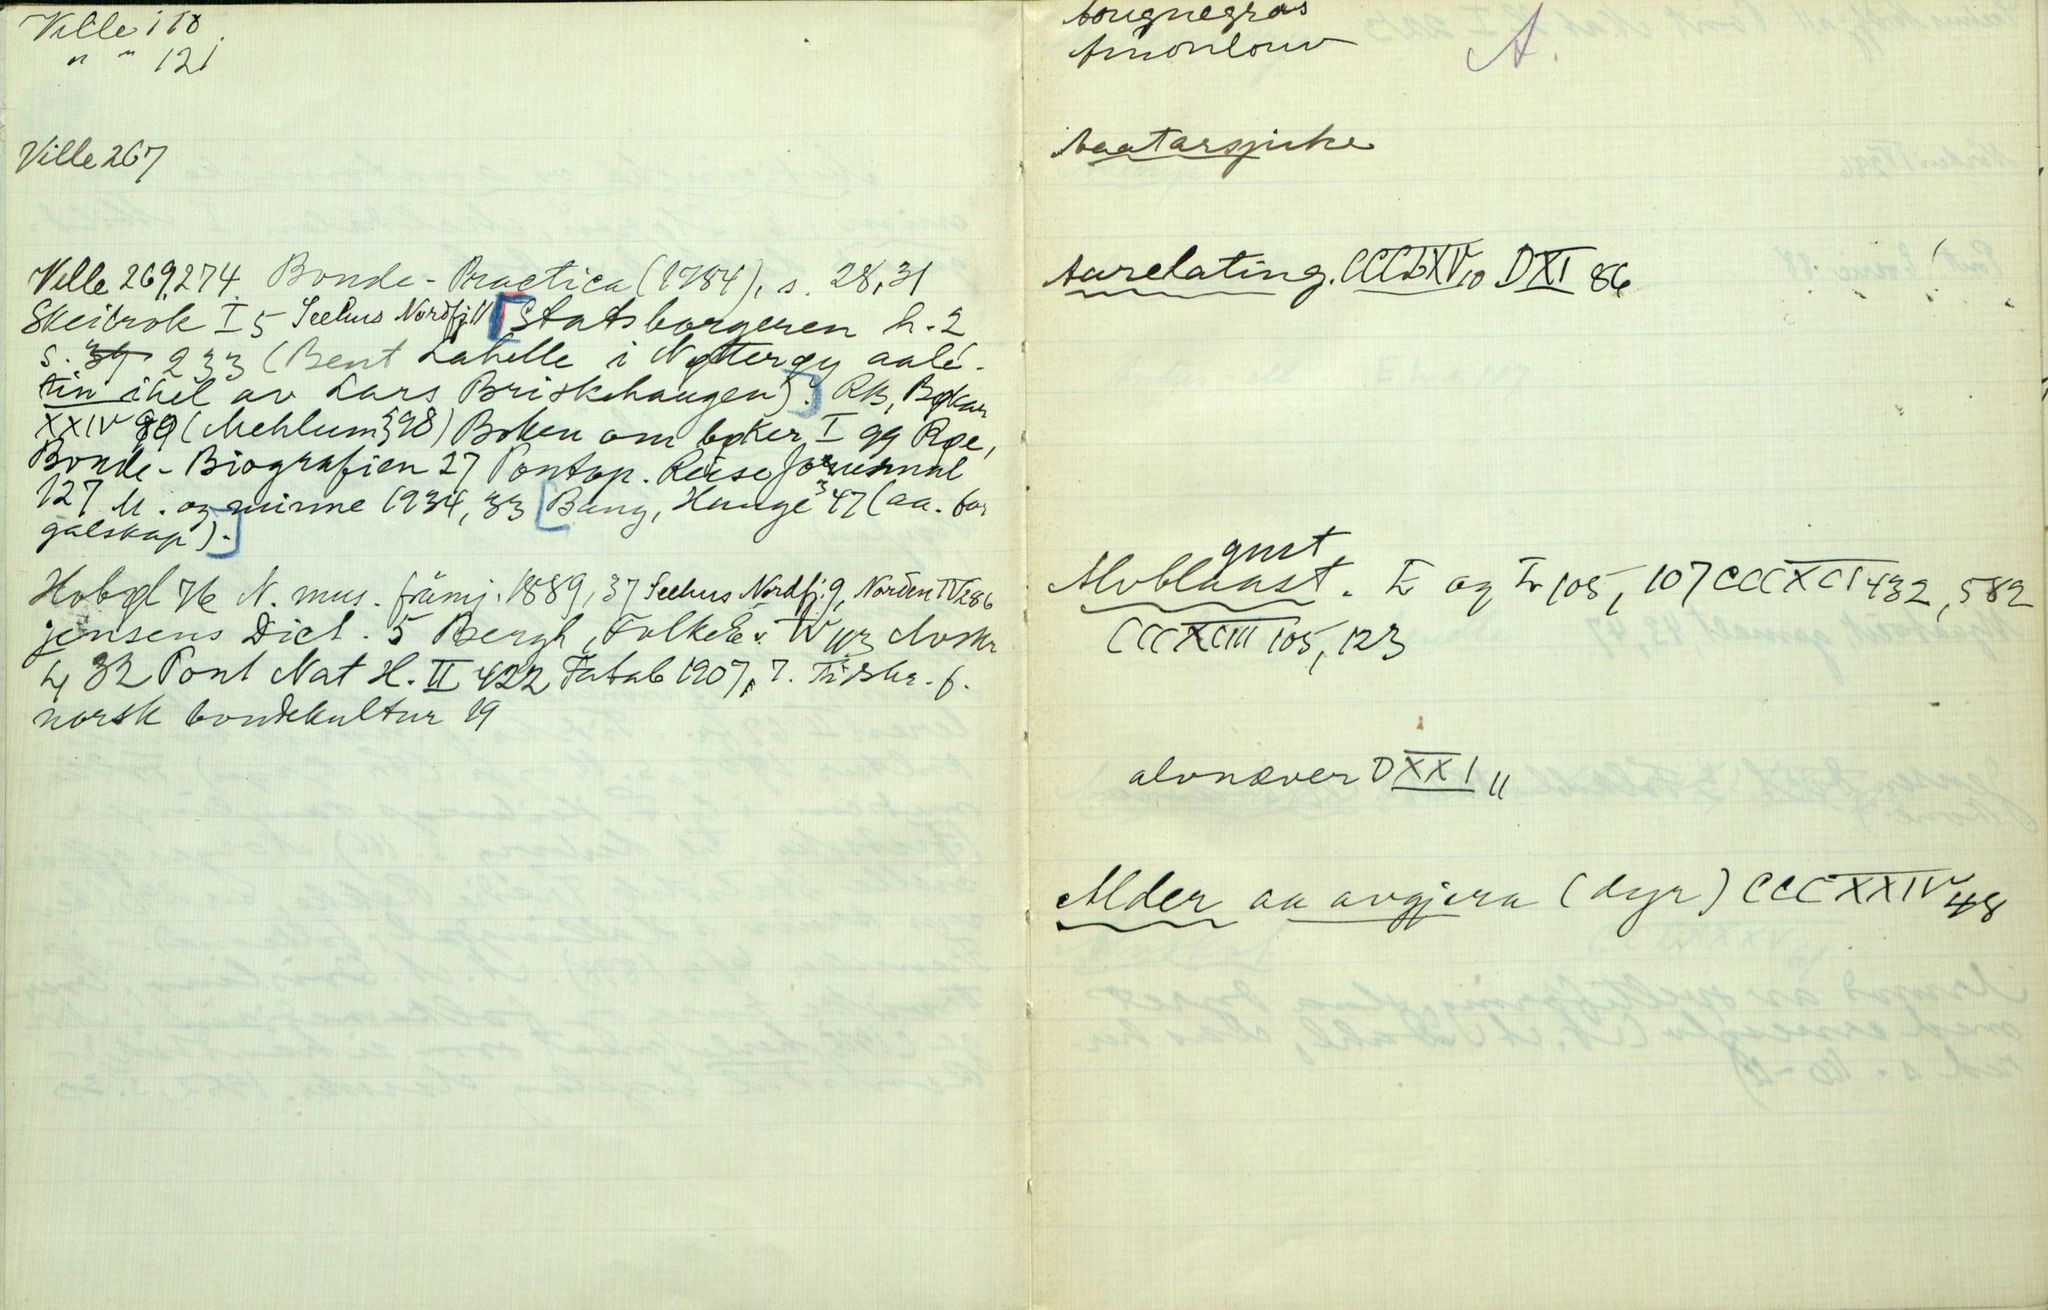 Ville 110
" " 121
Ville 267
Ville 269, 274 Bonde-Practica (1784), s. 28, 31
Skeibrok I 5 Seehus Nordfj. 11 [Statsborgeren h. 2
s. 39 233 (Bent Lahelle i Nøtterøy aale-
tin ihel av Lars Briskehaugen).] RB, Bøkar
XXIV 89 (Mehlum 398) Boken om bøker I 99 Roe,
Bonde-Biografien 27 Pontop. Reise Journal
127 M. og minne 1934, 33 [Bang, Hauge³ 47 (aa. for
galskap).]
N. mus. främj. 1889, 37 Seehus Nordfj. 9, Norden IV 286
Jensens Dict. 5 Bergh, Folke Ev. IV 113
4 32 Pont Nat H. II 422 Fatab 1907, 7. Tidskr. f.
norsk bondekultur 19
Aougnegras
A.
Aaatarsjuke
Aarelating. CCCLXV 10 DXI 86
gust
Alvblaast. I og Iv 105, 107 CCCXCI 432, 582
CCCXCIII 105, 123
alvnæver DXXI 11
Alder aa avgjera (dyr) CCCXXIV 48